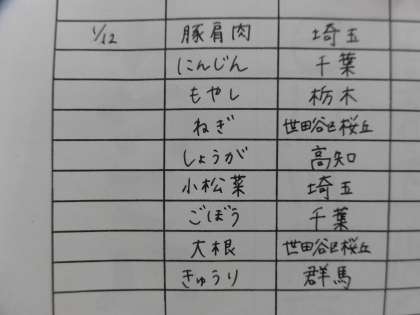 1/12 豚肩肉 埼玉
にんじん 千葉
もやし 栃木
ねぎ 世田谷区桜丘
しょうが 高知
小松菜 埼玉
ごぼう 千葉
大根 世田谷区桜丘
きゅうり 群馬